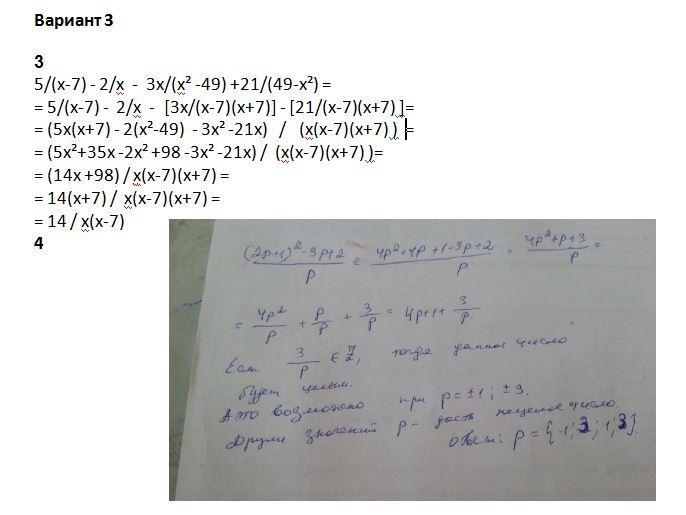 Вариант 3
3
5/(x-7) - 2/x - 3x/(x² -49) +21/(49-x²) =
= 5/(x-7) - 2/x - [3x/(x-7)(x+7)] - [21/(x-7)(x+7) ]=
= (5x(x+7) - 2(x²-49) - 3x² -21x) / (x(x-7)(x+7) ) =
= (5x²+35x -2x² +98 -3x² -21x) / (x(x-7)(x+7) )=
= (14x +98) / x(x-7)(x+7) =
= 14(x+7) / x(x-7)(x+7) =
= 14 / x(x-7)
4
(2p+1)²-3p+2 / p = 4p²+4p+1-3p+2 / p = 4p²+p+3 / p =
= 4p²/p + p/p + 3/p = 4p+1+ 3/p.
Если 3/p ∈ Z, тогда данное число
будет целым.
А это возможно при p = ±1; ±3.
Других значений p - дасть нецелое число.
Ответ: p = {-1; 3; 1; 3}.